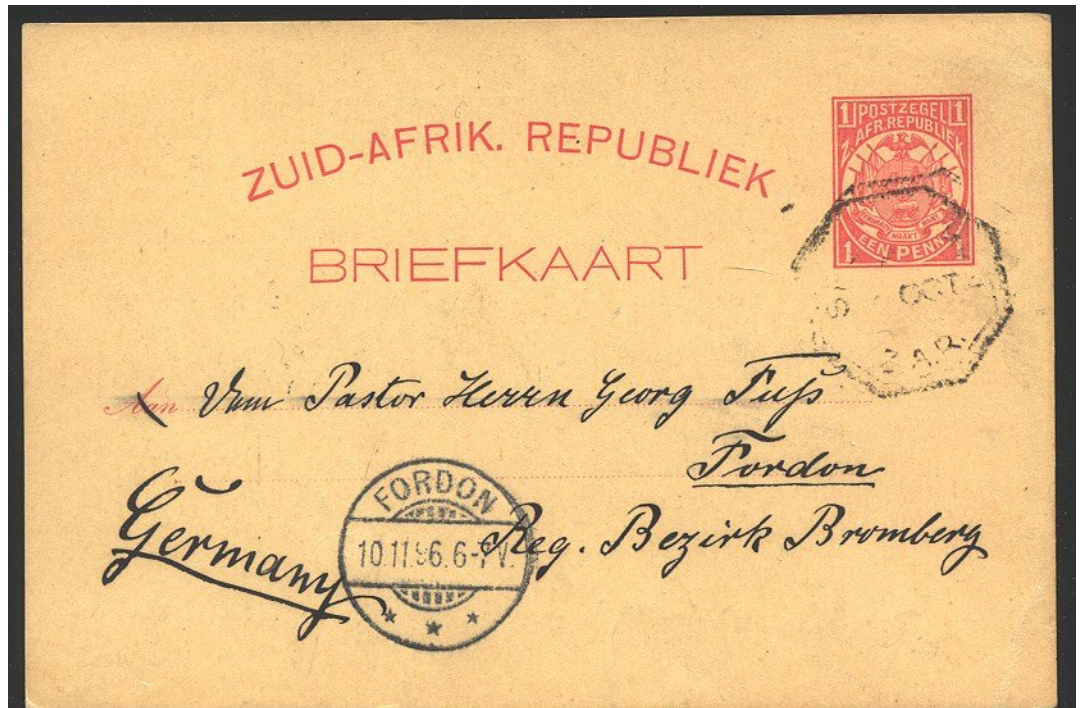 ZUID-AFRIK. REPUBLIEK
BRIEFKAART
1 POSTZEGEL 1
Z. AFR. REPUBLIEK
EENDRAGT MAAKT MAGT
1 EEN PENNY
OCT
Z.A.R.
Aan Dem Pastor Herrn Georg Fuß
Fordon
Reg. Bezirk Bromberg
Germany
FORDON
10.11.96.6-7V.